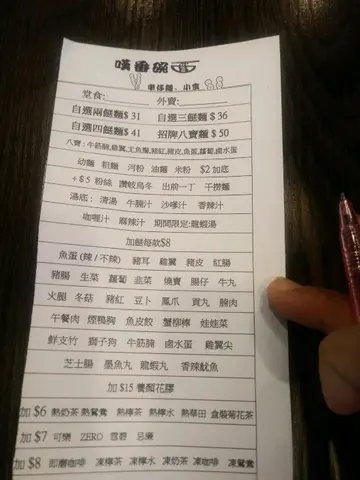 嘆番碗麵
車仔麵、小食
堂食: 外賣:
自選兩餸麵$31 自選三餸麵$36
自選四餸麵$41 招牌八寶麵$50
八寶:牛筋腩,雞翼,尤魚鬚,豬紅,豬皮,魚蛋,蘿蔔,鹵水蛋
幼麵 粗麵 河粉 油麵 米粉 $2加底
+$5 粉絲 讚岐烏冬 出前一丁 干撈麵
湯底: 清湯 牛腩汁 沙嗲汁 香辣汁
咖喱汁 麻辣汁 期間限定:龍蝦湯
加餸每款$8
魚蛋(辣/不辣) 豬耳 雞翼 豬皮 紅腸
豬腸 生菜 蘿蔔 韭菜 燒賣 腸仔 牛丸
火腿 冬菇 豬紅 豆卜 鳳爪 貢丸 腩肉
午餐肉 煙鴨胸 魚皮餃 蟹柳棒 娃娃菜
鮮支竹 獅子狗 牛筋腩 鹵水蛋 雞翼尖
芝士腸 墨魚丸 龍蝦丸 香辣魷魚
加$15養顏花膠
加$6 熱奶茶 熱鴛鴦 熱檸茶 熱檸水 熱華田 盒裝菊花茶
加$7 可樂 ZERO 雪碧 忌廉
加$8 即磨咖啡 凍檸茶 凍檸水 凍奶茶 凍咖啡 凍鴛鴦